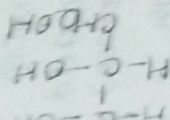 CH₂OH
H-C-OH
H-C-OH